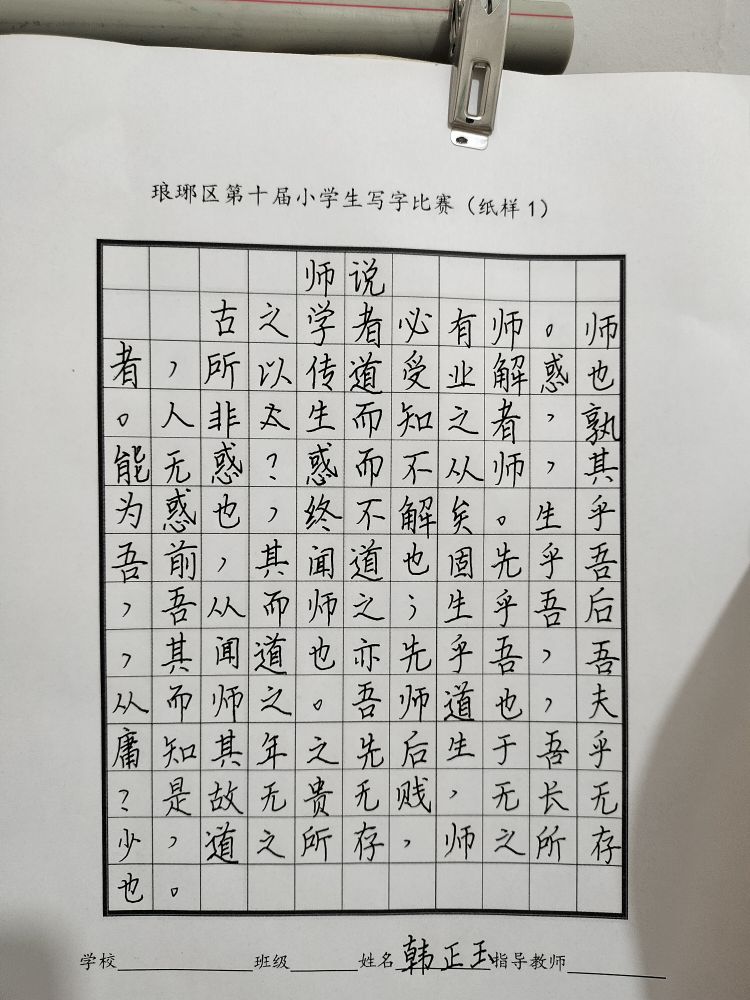 琅琊区第十届小学生写字比赛（纸样1）
师说
古之学者必有师。师
者，所以传道受业解惑也
。人非太生而知之者，孰
能无惑？惑而不从师，其
为惑也，终不解矣。生乎
吾前，其闻道也固先乎吾
，吾从而师之；生乎吾后
，其闻道也亦先乎吾，吾
从而师之。吾师道也，夫
庸知其年之先后生于吾乎
？是故无贵无贱，无长无
少，道之所存，师之所存
也。
学校 班级 姓名韩正玉指导教师